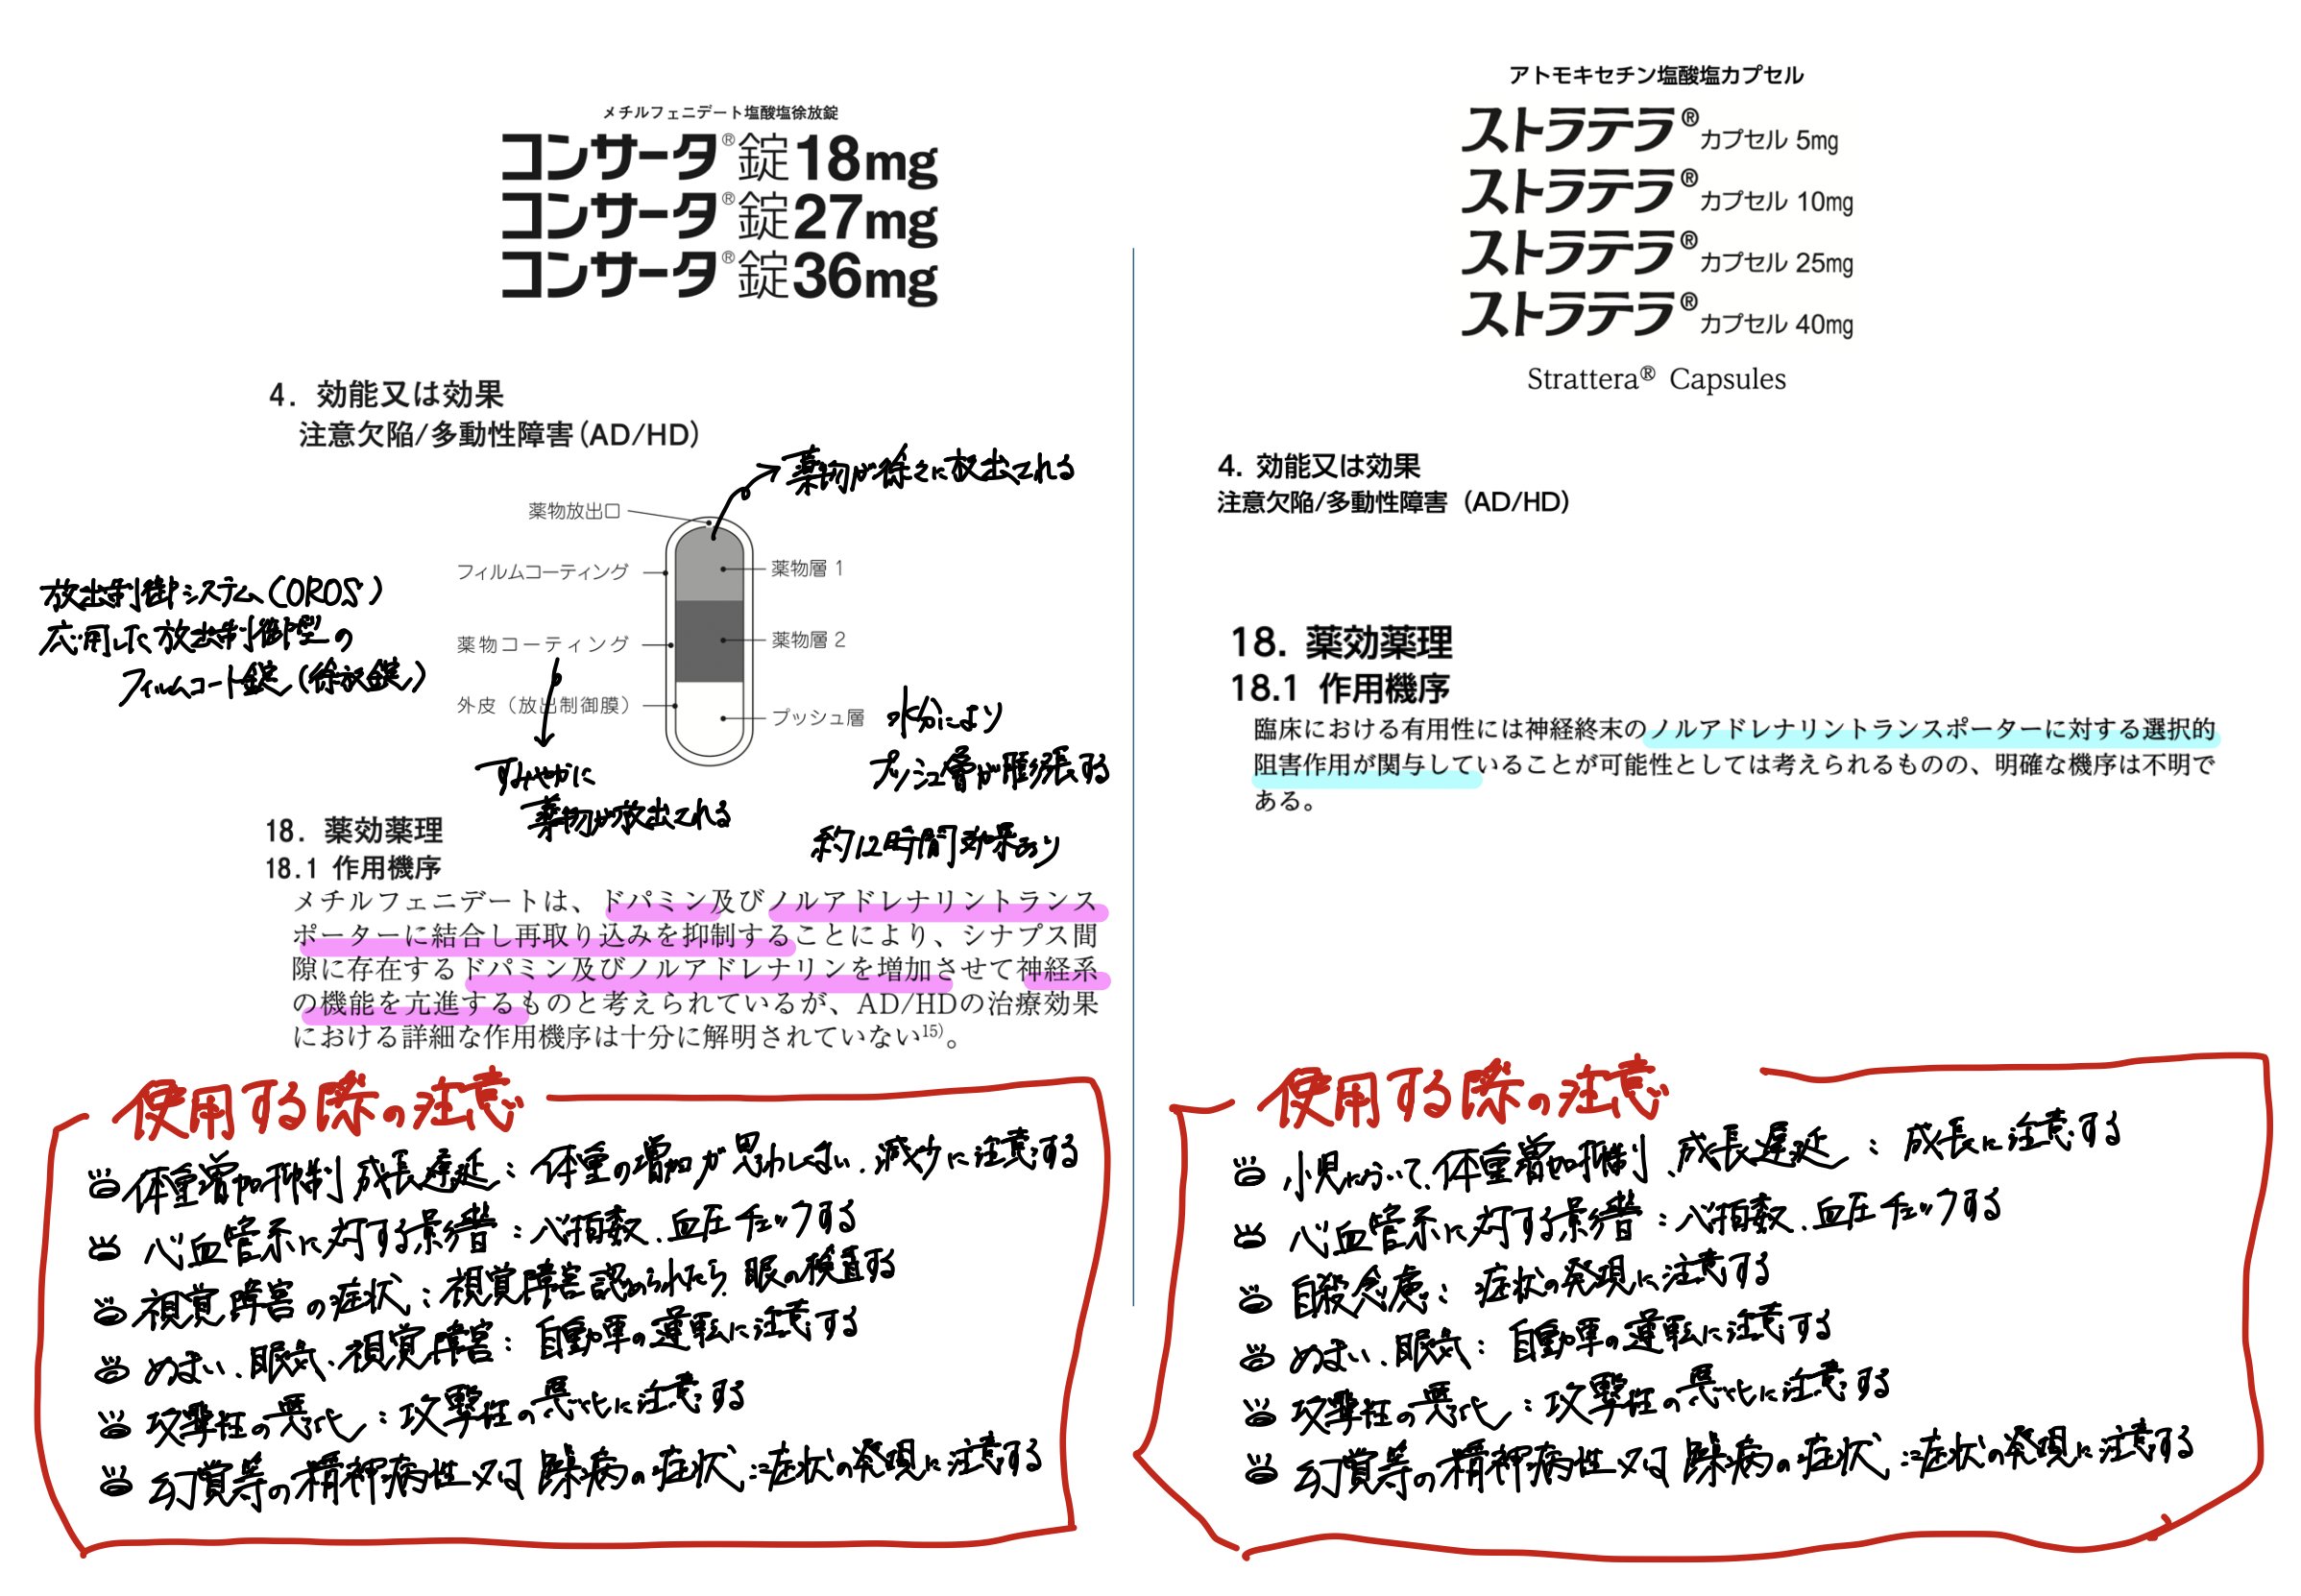 メチルフェニデート塩酸塩徐放錠
コンサータ®錠18mg
コンサータ®錠27mg
コンサータ®錠36mg
4. 効能又は効果
注意欠陥/多動性障害(AD/HD)
薬物が徐々に放出される
薬物放出口
フィルムコーティング
薬物層 1
放出制御システム(OROS)
応用した放出制御型の
フィルムコート錠(徐放錠)
薬物コーティング
薬物層 2
外皮(放出制御膜)
プッシュ層
水分により
プッシュ層が膨張する
すみやかに
薬物が放出される
約12時間効果あり
18. 薬効薬理
18.1 作用機序
メチルフェニデートは、ドパミン及びノルアドレナリントランス
ポーターに結合し再取り込みを抑制することにより、シナプス間
隙に存在するドパミン及びノルアドレナリンを増加させて神経系
の機能を亢進するものと考えられているが、AD/HDの治療効果
における詳細な作用機序は十分に解明されていない15)。
使用する際の注意
体重増加抑制 成長遅延:体重の増加が思わしくない、減少に注意する
心血管系に対する影響:心拍数、血圧チェックする
視覚障害の症状:視覚障害認められたら、眼の検査する
めまい、眠気、視覚障害:自動車の運転に注意する
攻撃性の悪化:攻撃性の悪化に注意する
幻覚等の精神病性又は躁病の症状:症状の発現に注意する
アトモキセチン塩酸塩カプセル
ストラテラ®カプセル 5mg
ストラテラ®カプセル 10mg
ストラテラ®カプセル 25mg
ストラテラ®カプセル 40mg
Strattera® Capsules
4. 効能又は効果
注意欠陥/多動性障害(AD/HD)
18. 薬効薬理
18.1 作用機序
臨床における有用性には神経終末のノルアドレナリントランスポーターに対する選択的
阻害作用が関与していることが可能性としては考えられるものの、明確な機序は不明で
ある。
使用する際の注意
小児において、体重増加抑制、成長遅延:成長に注意する
心血管系に対する影響:心拍数、血圧チェックする
自殺念慮:症状の発現に注意する
めまい、眠気:自動車の運転に注意する
攻撃性の悪化:攻撃性の悪化に注意する
幻覚等の精神病性又は躁病の症状:症状の発現に注意する